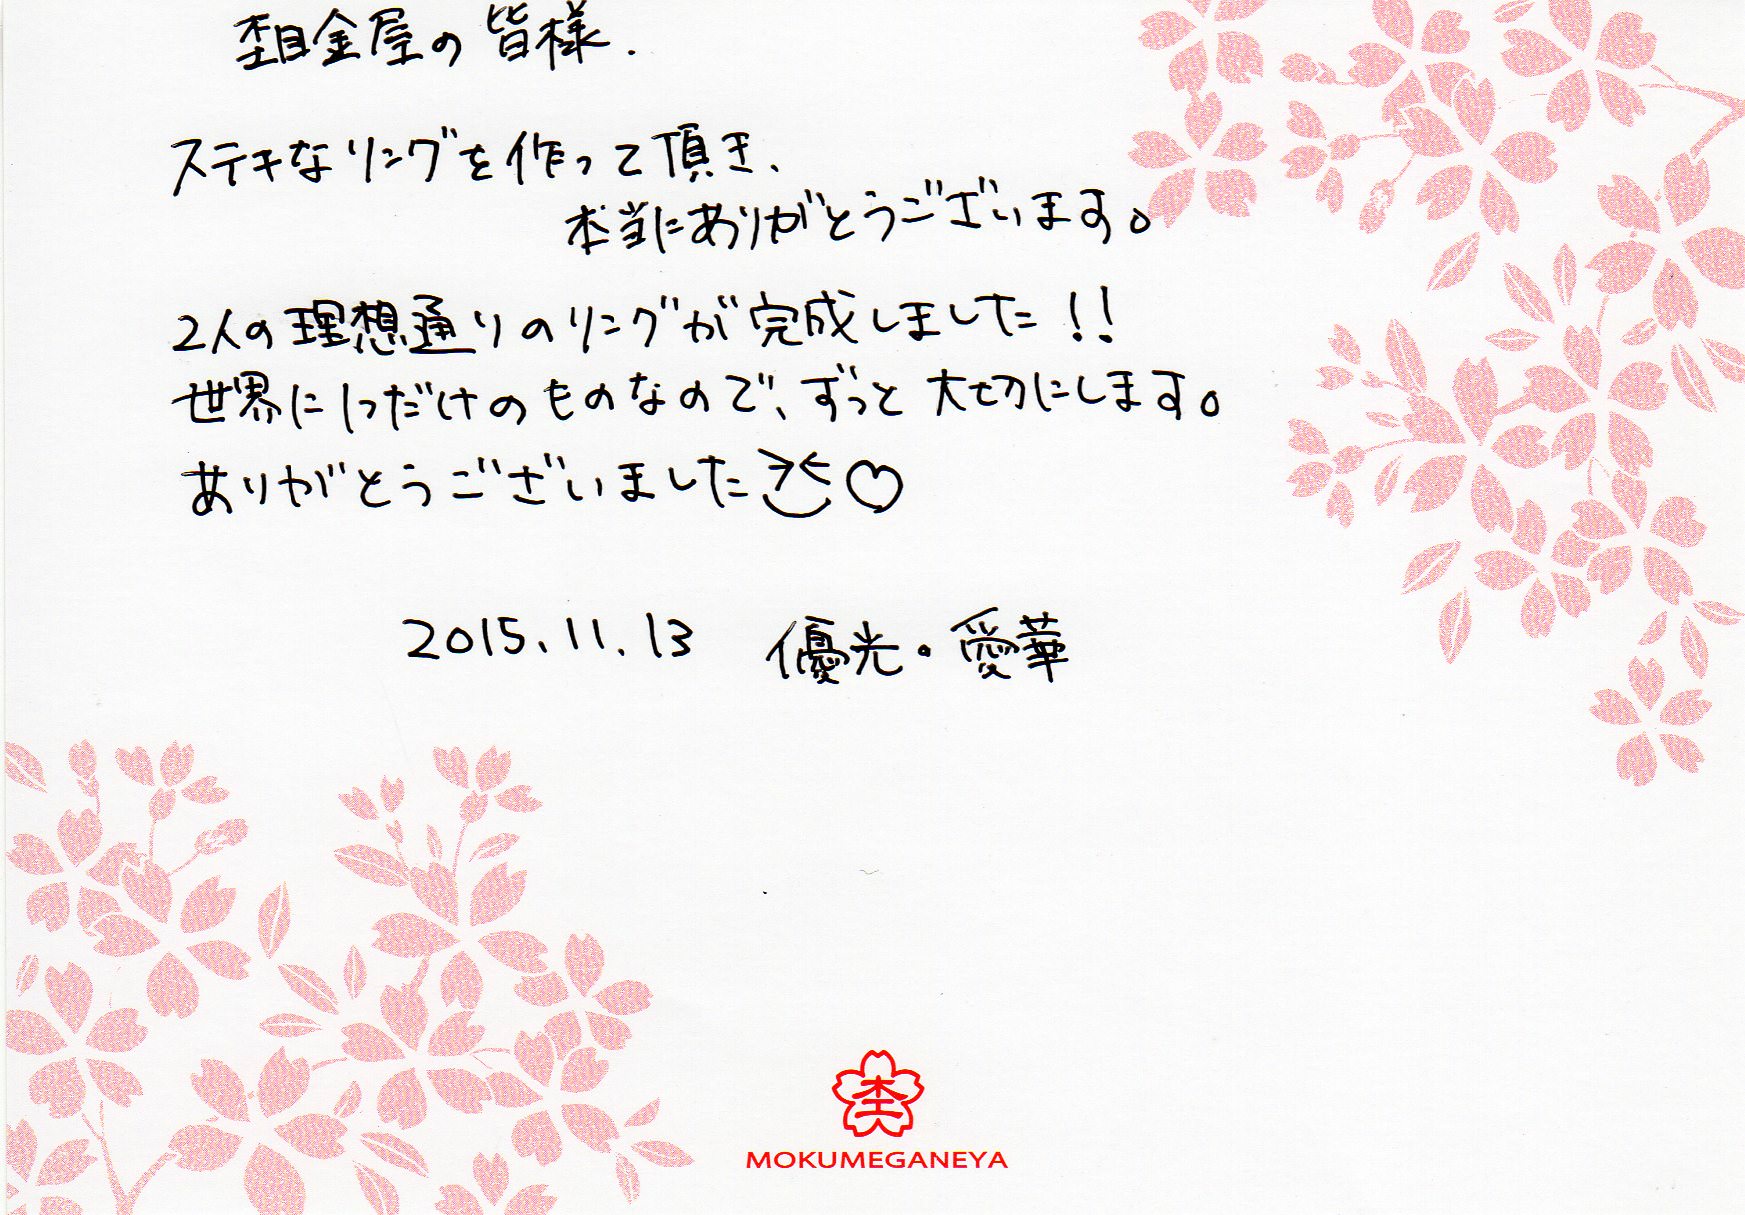 杢目金屋の皆様.
ステキなリングを作って頂き、
本当にありがとうございます。
2人の理想通りのリングが完成しました!!
世界に1つだけのものなので、ずっと大切にします。
ありがとうございました
2015.11.13 優光・愛華
杢
MOKUMEGANEYA